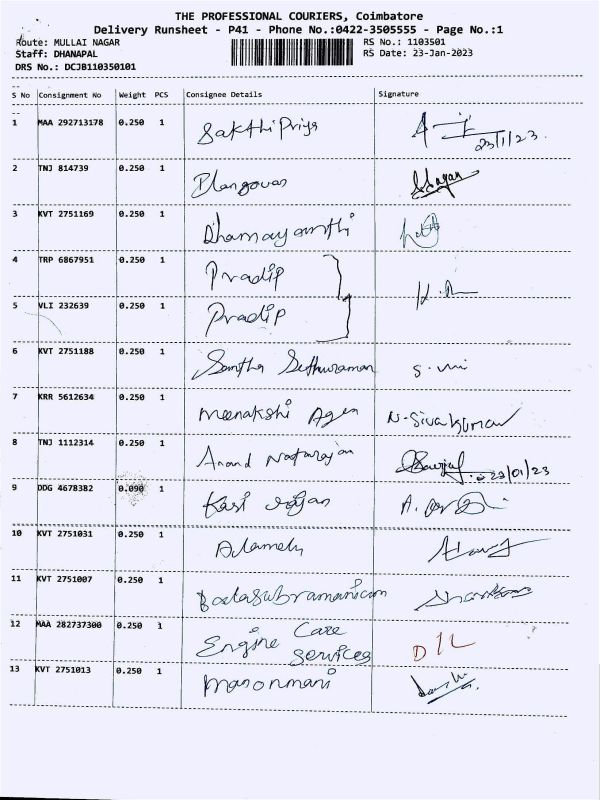 THE PROFESSIONAL COURIERS, Coimbatore
Delivery Runsheet - P41 - Phone No.:0422-3505555 - Page No.:1
Route: MULLAI NAGAR RS No.: 1103501
Staff: DHANAPAL RS Date: 23-Jan-2023
DRS No.: DCJB110350101
S No Consignment No Weight PCS Consignee Details Signature
1 MAA 292713178 0.250 1 Sakthi Priya 23/1/23.
2 TNJ 814739 0.250 1 Elangovan
3 KVT 2751169 0.250 1 Dhamayanthi
4 TRP 6867951 0.250 1 Pradip
5 VLI 232639 0.250 1 Pradip
6 KVT 2751188 0.250 1 Santha Sethuraman
7 KRR 5612634 0.250 1 Meenakshi Agen N-Sivakumar
8 TNJ 1112314 0.250 1 Anand Natarajan 23/01/23
9 DDG 4678382 0.090 1 Kasi rajan
10 KVT 2751031 0.250 1 Alamelu
11 KVT 2751007 0.250 1 Balasubramanian
12 MAA 282737300 0.250 1 Engine Care
Services D/L
13 KVT 2751013 0.250 1 Manonmani